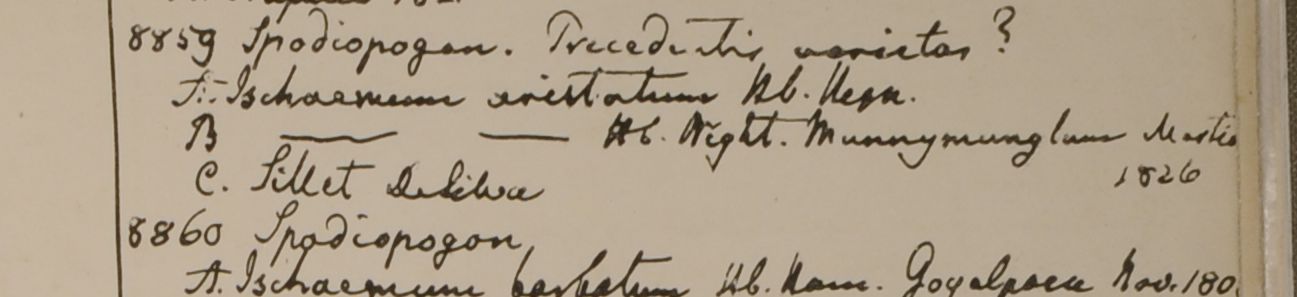 8859 Spodiopogon. Precedentis varietas?
A. Ischaemum aristatum Hb. Heyn.
B — — Hb. Wight. Munnymunglum Martio
1826
C. Sillet DeSilva
8860 Spodiopogon
A. Ischaemum barbatum Hb. Ham. Goyalpara Nov. 180